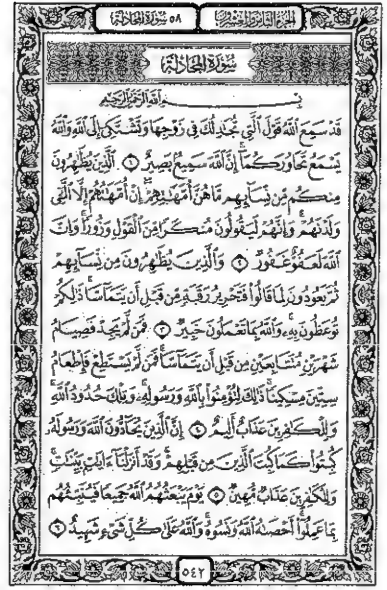 الجزء الثامن والعشرون
٥٨ سورة المجادلة
سُورَةُ المُجَادلة
بِسْمِ اللَّهِ الرَّحْمَٰنِ الرَّحِيمِ
قَدْ سَمِعَ اللَّهُ قَوْلَ الَّتِي تُجَادِلُكَ فِي زَوْجِهَا وَتَشْتَكِي إِلَى اللَّهِ وَاللَّهُ
يَسْمَعُ تَحَاوُرَكُمَا إِنَّ اللَّهَ سَمِيعٌ بَصِيرٌ ١ الَّذِينَ يُظَاهِرُونَ
مِنكُم مِّن نِّسَائِهِم مَّا هُنَّ أُمَّهَاتِهِمْ إِنْ أُمَّهَاتُهُمْ إِلَّا اللَّائِي
وَلَدْنَهُمْ وَإِنَّهُمْ لَيَقُولُونَ مُنكَرًا مِّنَ الْقَوْلِ وَزُورًا وَإِنَّ
اللَّهَ لَعَفُوٌّ غَفُورٌ ٢ وَالَّذِينَ يُظَاهِرُونَ مِن نِّسَائِهِمْ
ثُمَّ يَعُودُونَ لِمَا قَالُوا فَتَحْرِيرُ رَقَبَةٍ مِّن قَبْلِ أَن يَتَمَاسَّا ذَٰلِكُمْ
تُوعَظُونَ بِهِ وَاللَّهُ بِمَا تَعْمَلُونَ خَبِيرٌ ٣ فَمَن لَّمْ يَجِدْ فَصِيَامُ
شَهْرَيْنِ مُتَتَابِعَيْنِ مِن قَبْلِ أَن يَتَمَاسَّا فَمَن لَّمْ يَسْتَطِعْ فَإِطْعَامُ
سِتِّينَ مِسْكِينًا ذَٰلِكَ لِتُؤْمِنُوا بِاللَّهِ وَرَسُولِهِ وَتِلْكَ حُدُودُ اللَّهِ
وَلِلْكَافِرِينَ عَذَابٌ أَلِيمٌ ٤ إِنَّ الَّذِينَ يُحَادُّونَ اللَّهَ وَرَسُولَهُ
كُبِتُوا كَمَا كُبِتَ الَّذِينَ مِن قَبْلِهِمْ وَقَدْ أَنزَلْنَا آيَاتٍ بَيِّنَاتٍ
وَلِلْكَافِرِينَ عَذَابٌ مُّهِينٌ ٥ يَوْمَ يَبْعَثُهُمُ اللَّهُ جَمِيعًا فَيُنَبِّئُهُم
بِمَا عَمِلُوا أَحْصَاهُ اللَّهُ وَنَسُوهُ وَاللَّهُ عَلَىٰ كُلِّ شَيْءٍ شَهِيدٌ ٦
٥٤٢